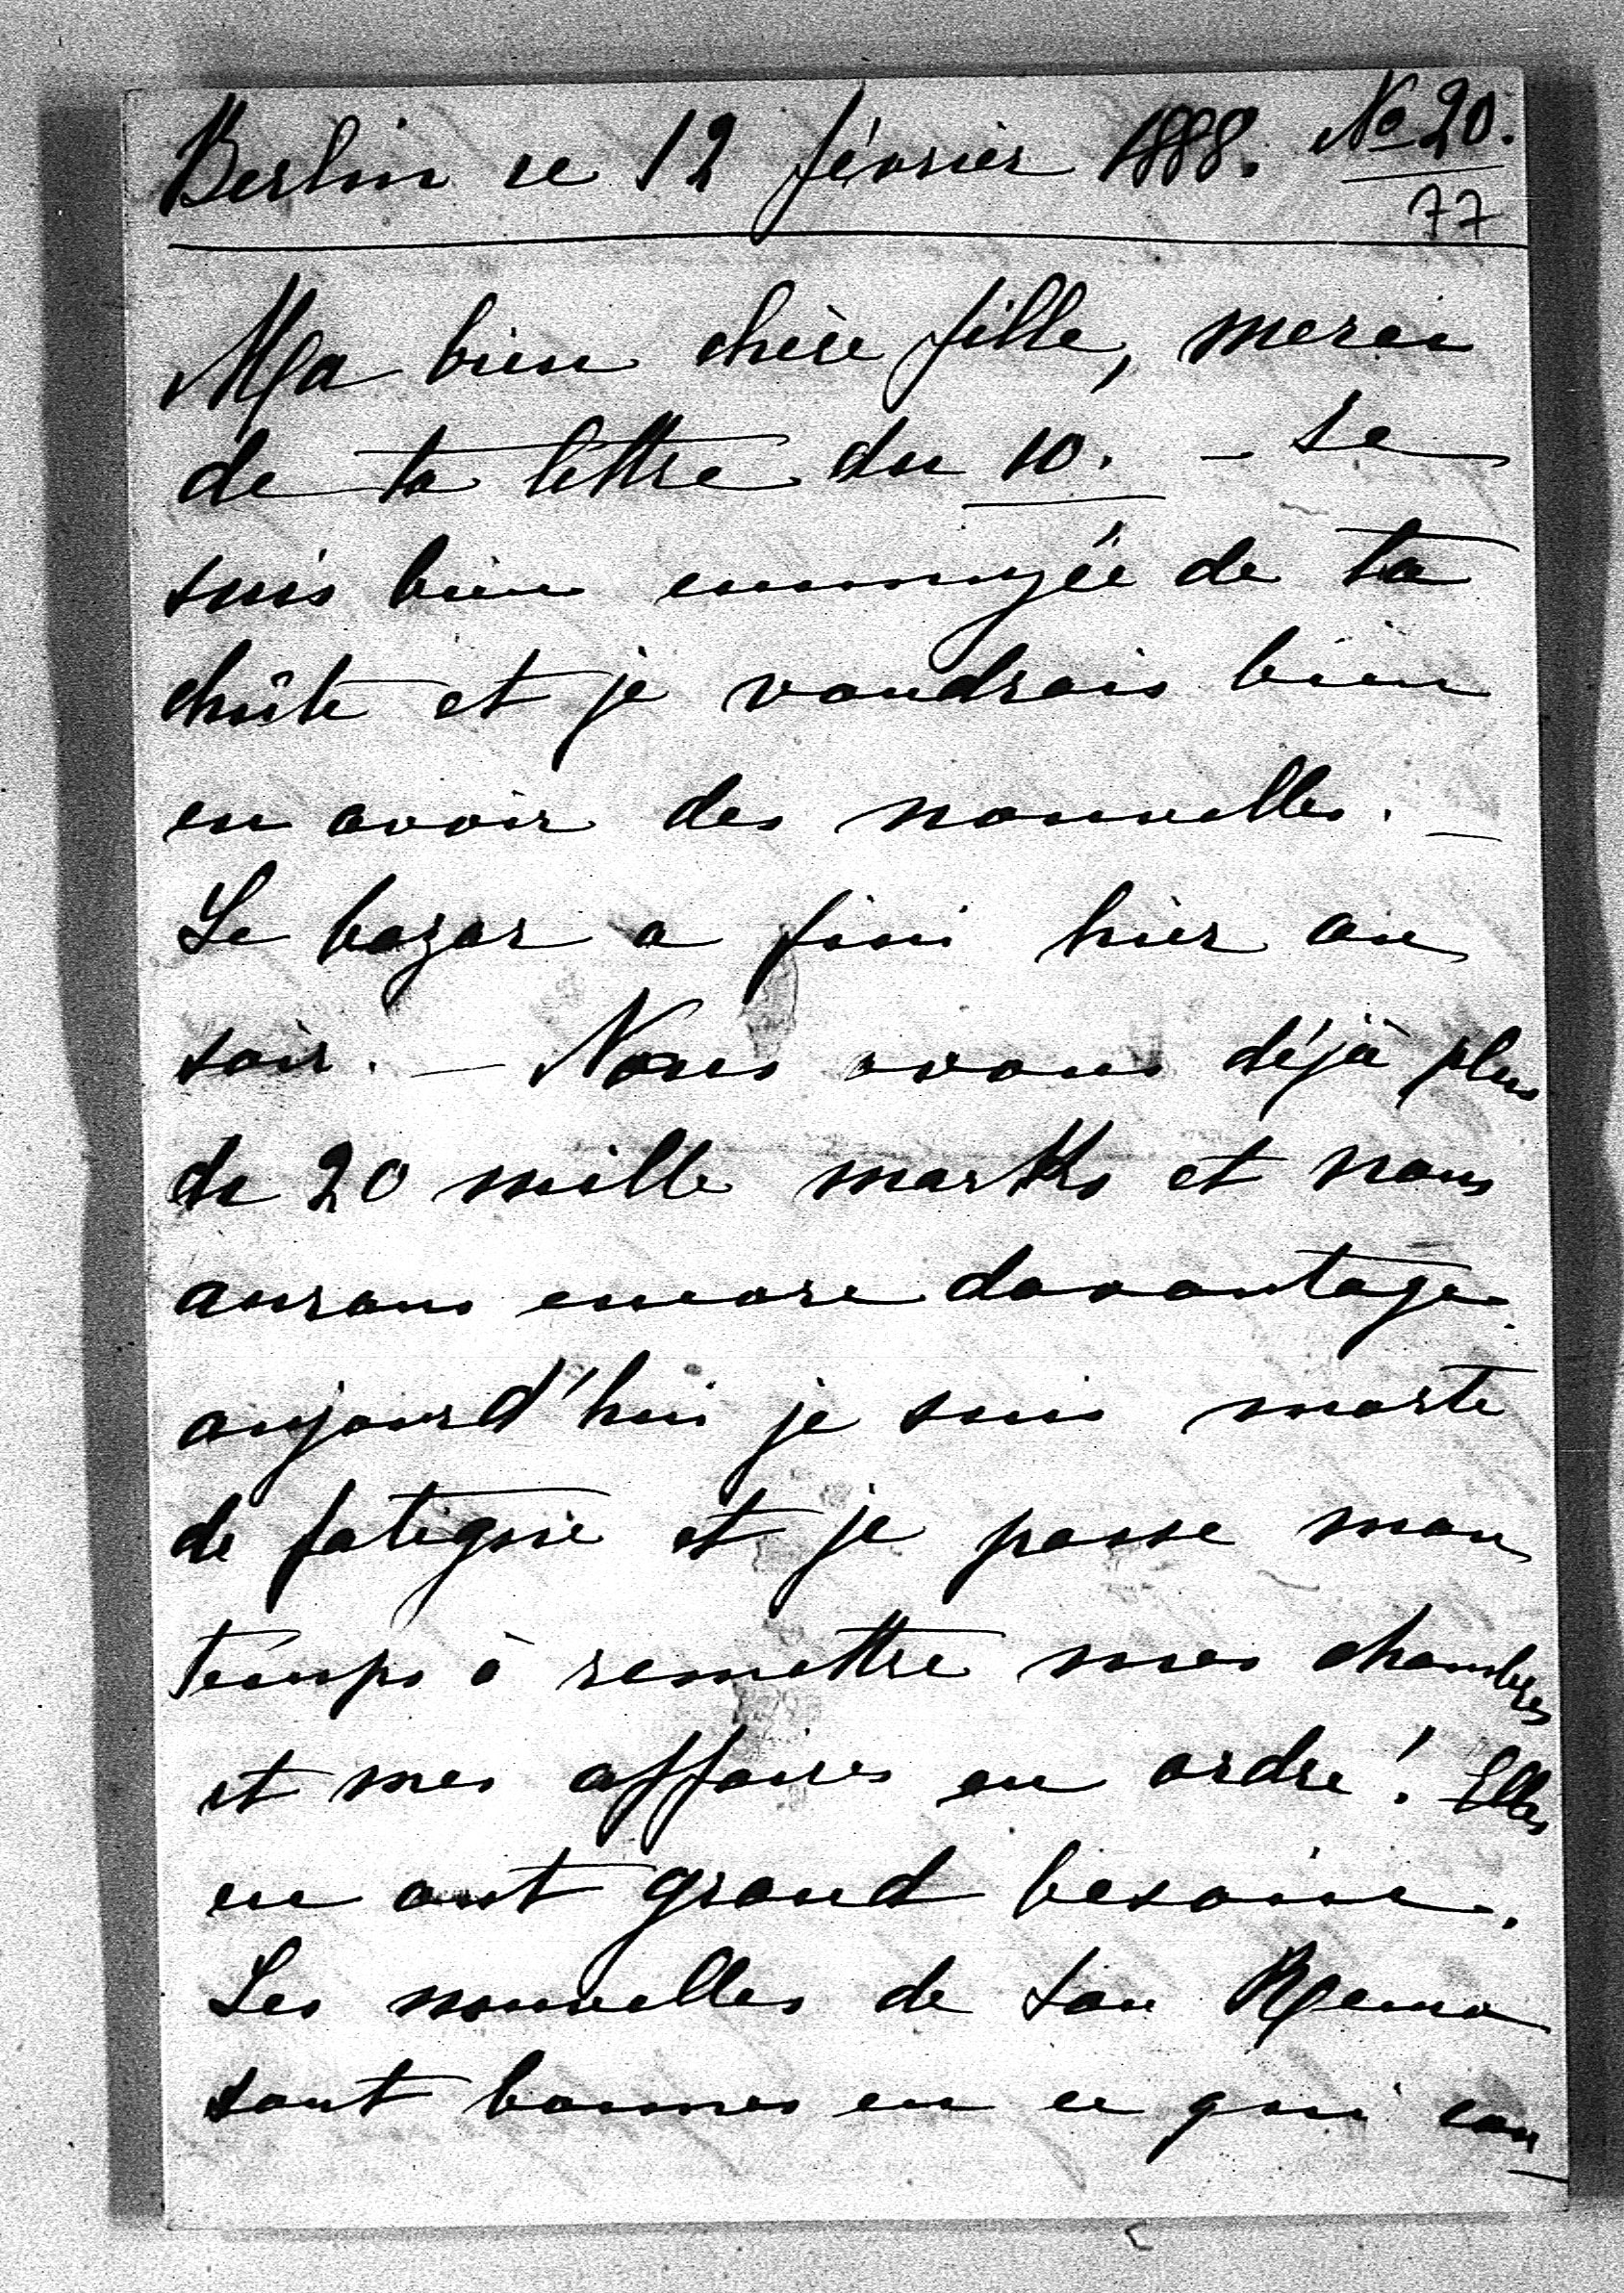 Berlin ce 12 février 1888. No 20.
77
Ma bien chère fille, merci
de ta lettre du 10. – Je
suis bien ennuyée de ta
chûte et je voudrais bien
en avoir des nouvelles. –
Le bazar a fini hier au
soir. – Nous avons déjà plus
de 20 mille markks et nous
aurons encore davantage.
aujourd'hui je suis morte
de fatigue et je passe mon
temps à remettre mes chambres
et mes affaires en ordre! Elles
en ont grand besoin.
Les nouvelles de San Remo
sont bonnes en ce qui con